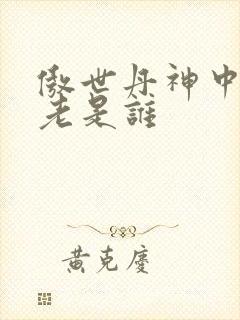 傲世丹神中
老是誰
黃克慶